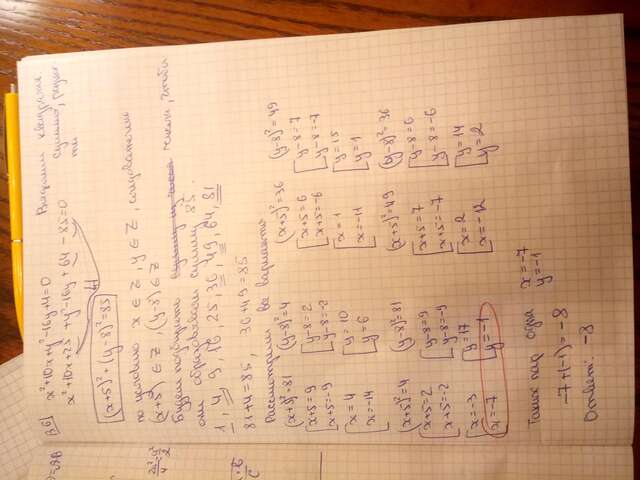 В6
x²+10x+y²-16y+4=0
Выделим квадраты
x²+10x+25 +y²-16y+64-85=0
суммы, разнос
ти
4
(x+5)²+(y-8)²=85
по условию x∈Z, y∈Z, следовательно
(x+5)²∈Z, (y-8)∈Z
Будем подбирать числа, чтобы
они образовывали сумму 85.
1, 4, 9, 16, 25, 36, 49, 64, 81
81+4=85, 36+49=85
Рассмотрим все варианты
(x+5)²=81 (y-8)²=4 (x+5)²=36 (y-8)²=49
x+5=9 y-8=2 x+5=6 y-8=7
x+5=-9 y-8=-2 x+5=-6 y-8=-7
x=4 y=10 x=1 y=15
x=-14 y=6 x=-11 y=1
(x+5)²=4 (y-8)²=81 (x+5)²=49 (y-8)²=36
x+5=2 y-8=9 x+5=7 y-8=6
x+5=-2 y-8=-9 x+5=-7 y-8=-6
x=-3 y=17 x=2 y=14
x=-7 y=-1 x=-12 y=2
Таких пар одна x=-7
y=-1
-7+(-1)=-8
Ответ: -8